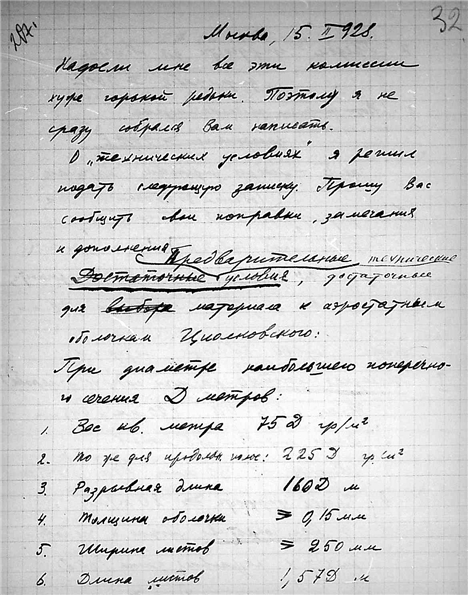 287.
32
Москва, 15.II 928.
Надоели мне все эти комиссии
хуже горькой редьки. Поэтому я не
сразу собрался Вам написать.
О „технических условиях" я решил
подать следующую записку. Прошу Вас
сообщить свои поправки, замечания
и дополнения. Предварительные технические
Достаточные условия, достаточные
для выбора материала к аэростатным
оболочкам Циолковского:
При диаметре наибольшего поперечно-
го сечения D метров:
1. Вес кв. метра 75D гр/м²
2. То же для продольн. : 225D гр/м²
3. Разрывная длина 160D м
4. Толщина оболочки ⩾ 0,15 мм
5. Ширина листов ⩾ 250 мм
6. Длина листов 1,57D м